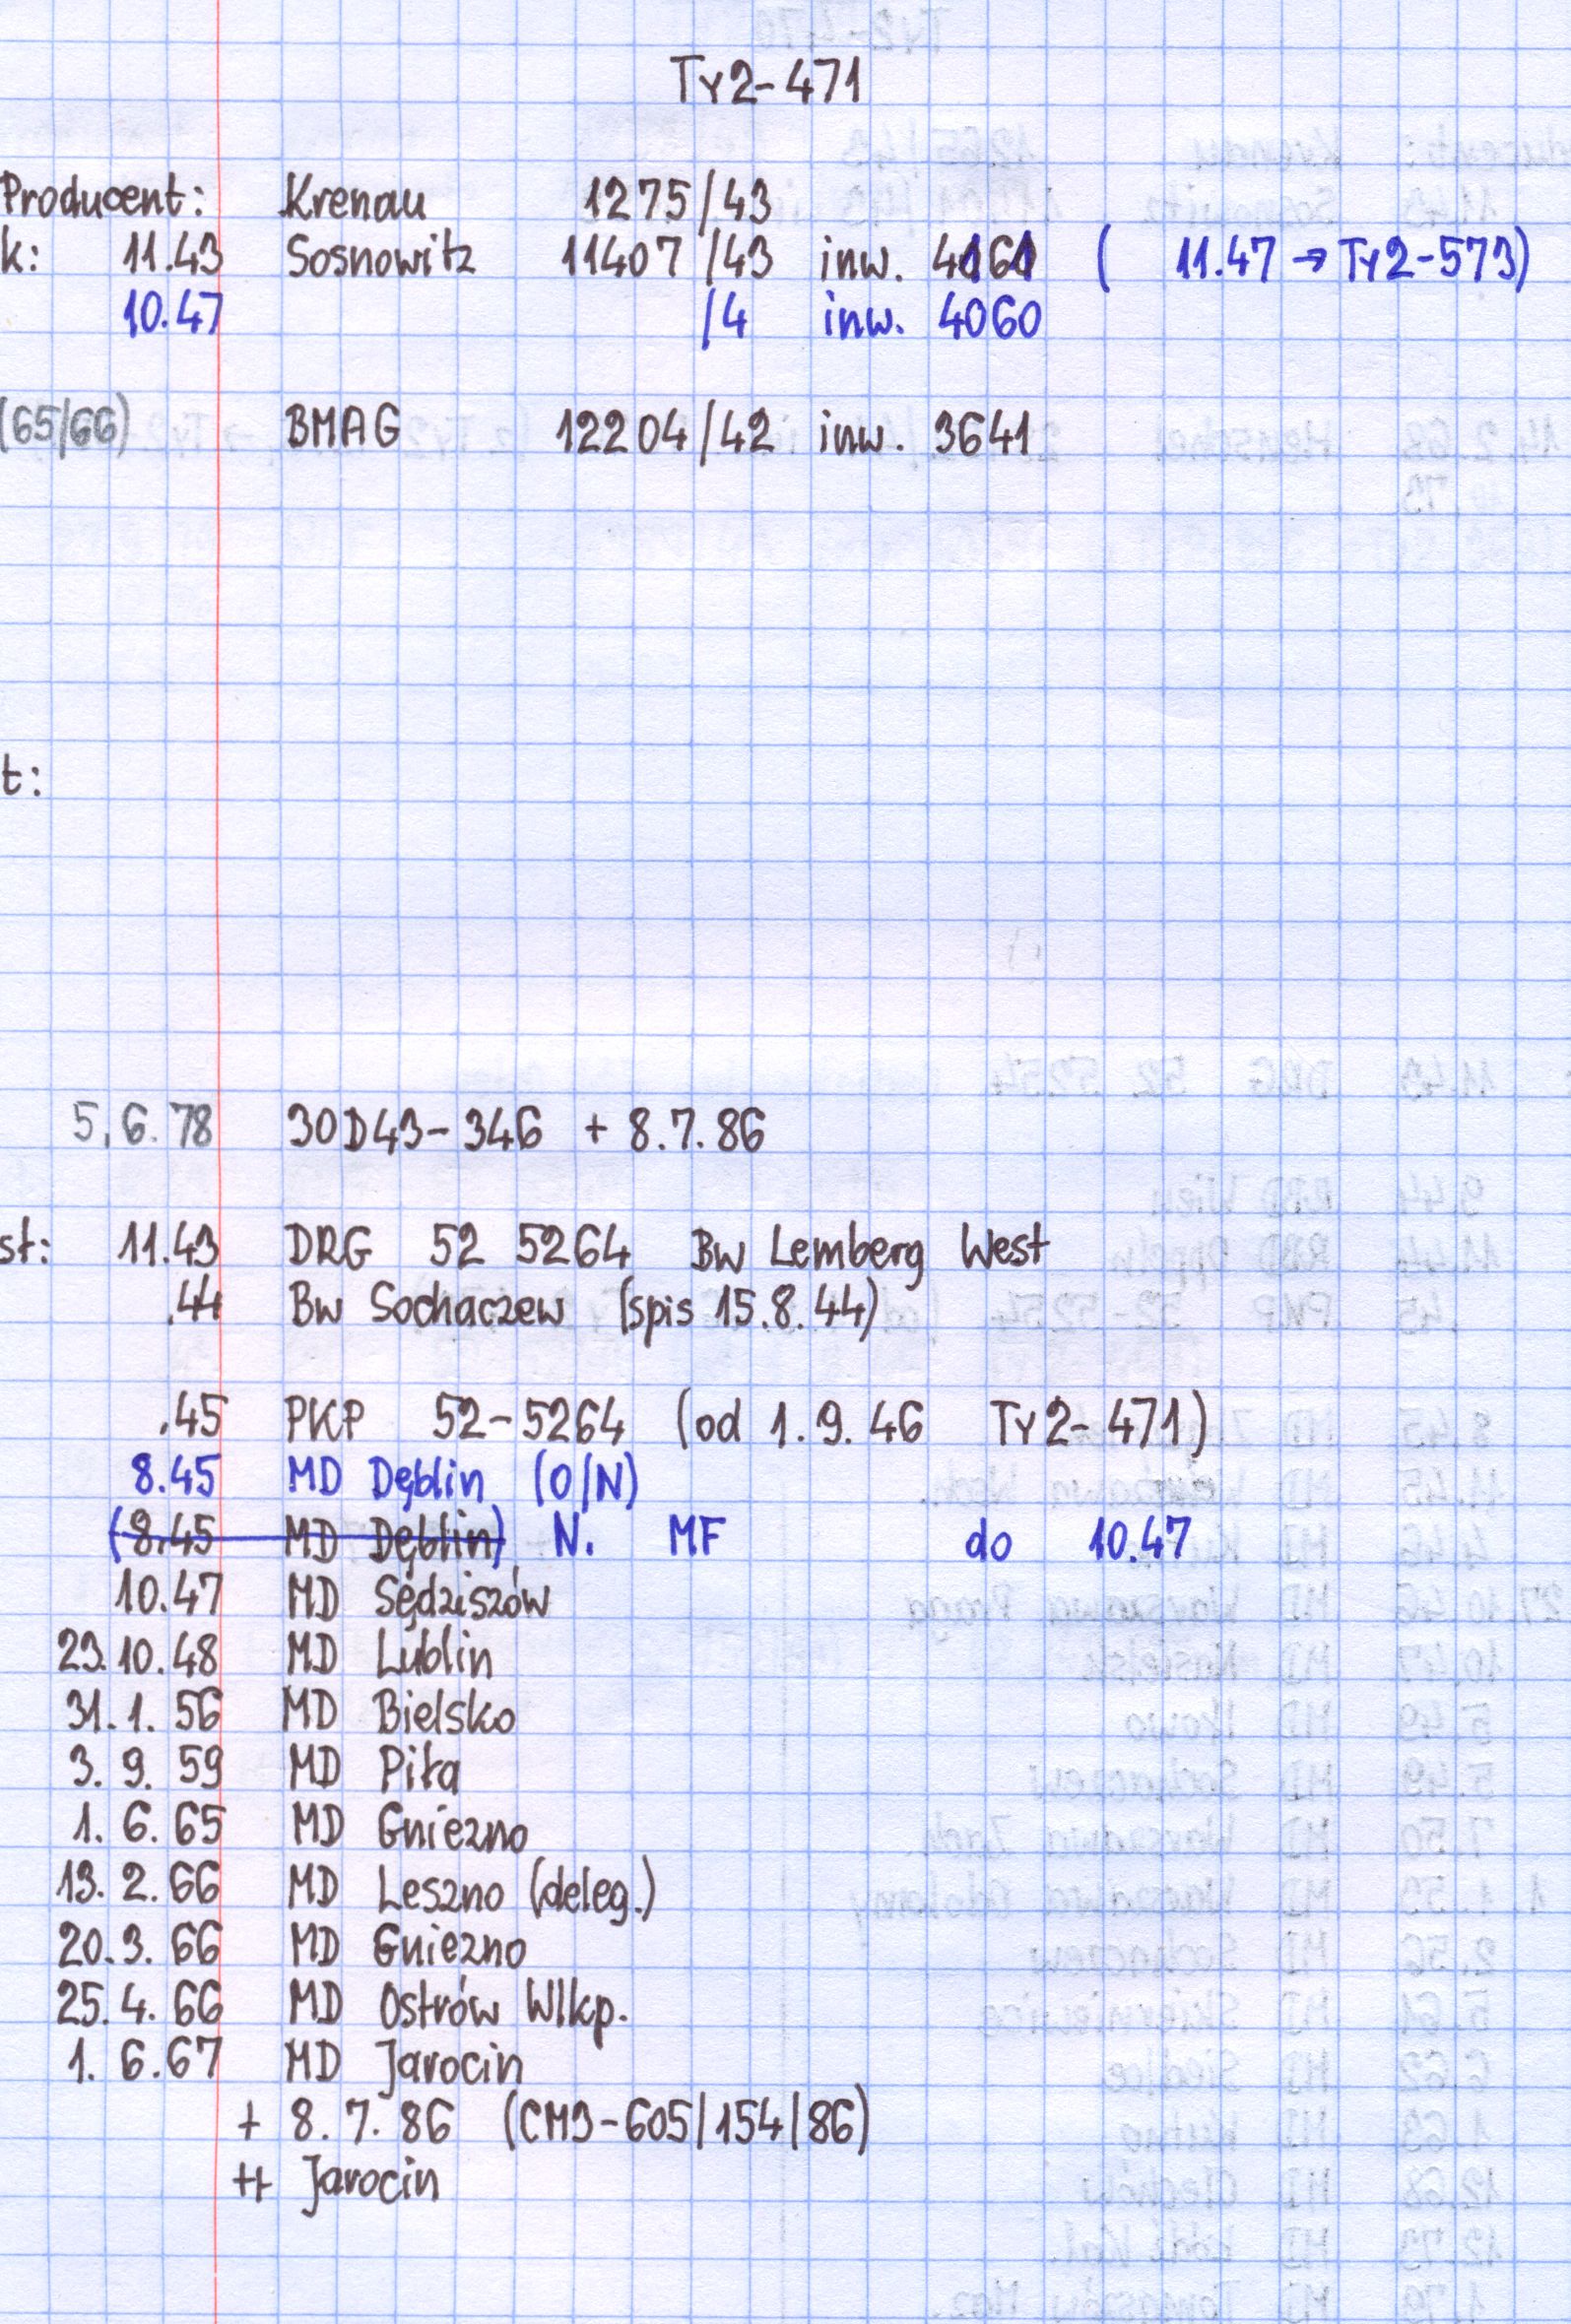 Ty2-471
Producent: Krenau 1275/43
k: 11.43 Sosnowitz 11407/43 inw. 4161 ( 11.47 → Ty2-573)
10.47 /4 inw. 4060
(65/66) BMAG 12204/42 inw. 3641
t:
5,6.78 30D43-346 + 8.7.86
st: 11.43 DRG 52 5264 Bw Lemberg West
.44 Bw Sochaczew (spis 15.8.44)
.45 PKP 52-5264 (od 1.9.46 Ty2-471)
8.45 MD Dęblin (O/N)
(8.45 MD Dęblin) N. MF do 10.47
10.47 MD Sędziszów
23.10.48 MD Lublin
31.1.56 MD Bielsko
3.9.59 MD Piła
1.6.65 MD Gniezno
13.2.66 MD Leszno (deleg.)
20.3.66 MD Gniezno
25.4.66 MD Ostrów Wlkp.
1.6.67 MD Jarocin
+ 8.7.86 (CM3-605/154/86)
++ Jarocin